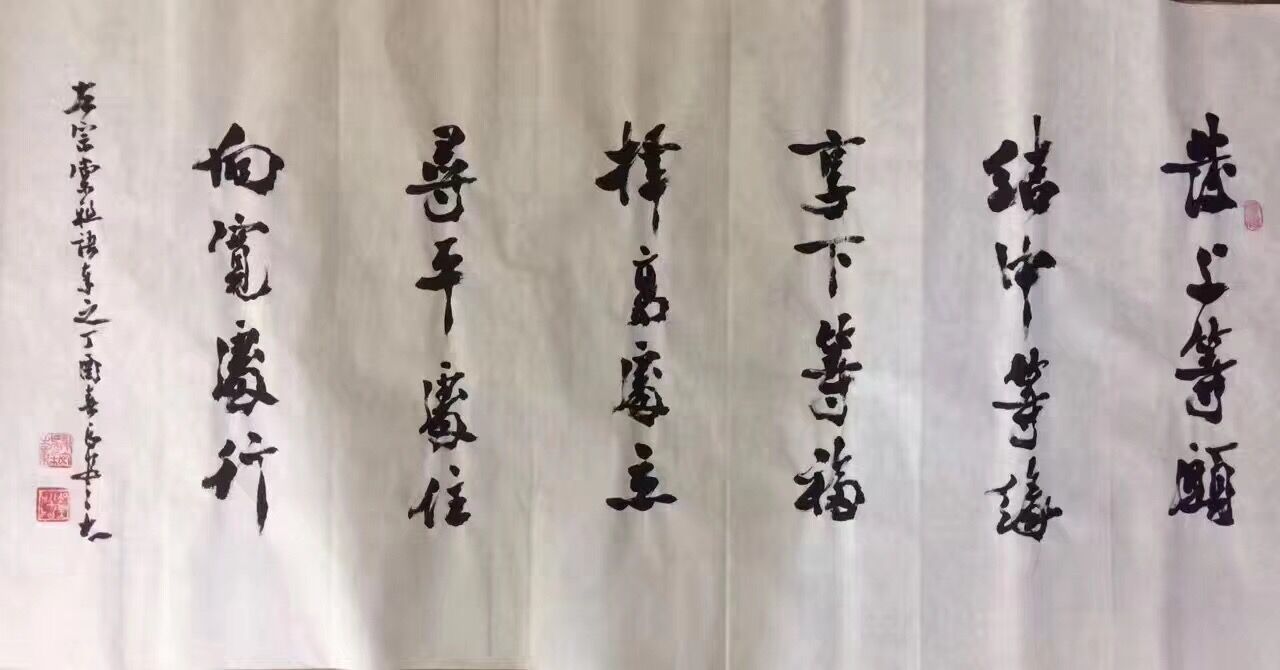 發上等願
結中等緣
享下等福
擇高處立
尋平處住
向寬處行
左宗棠聯語 之丁酉春